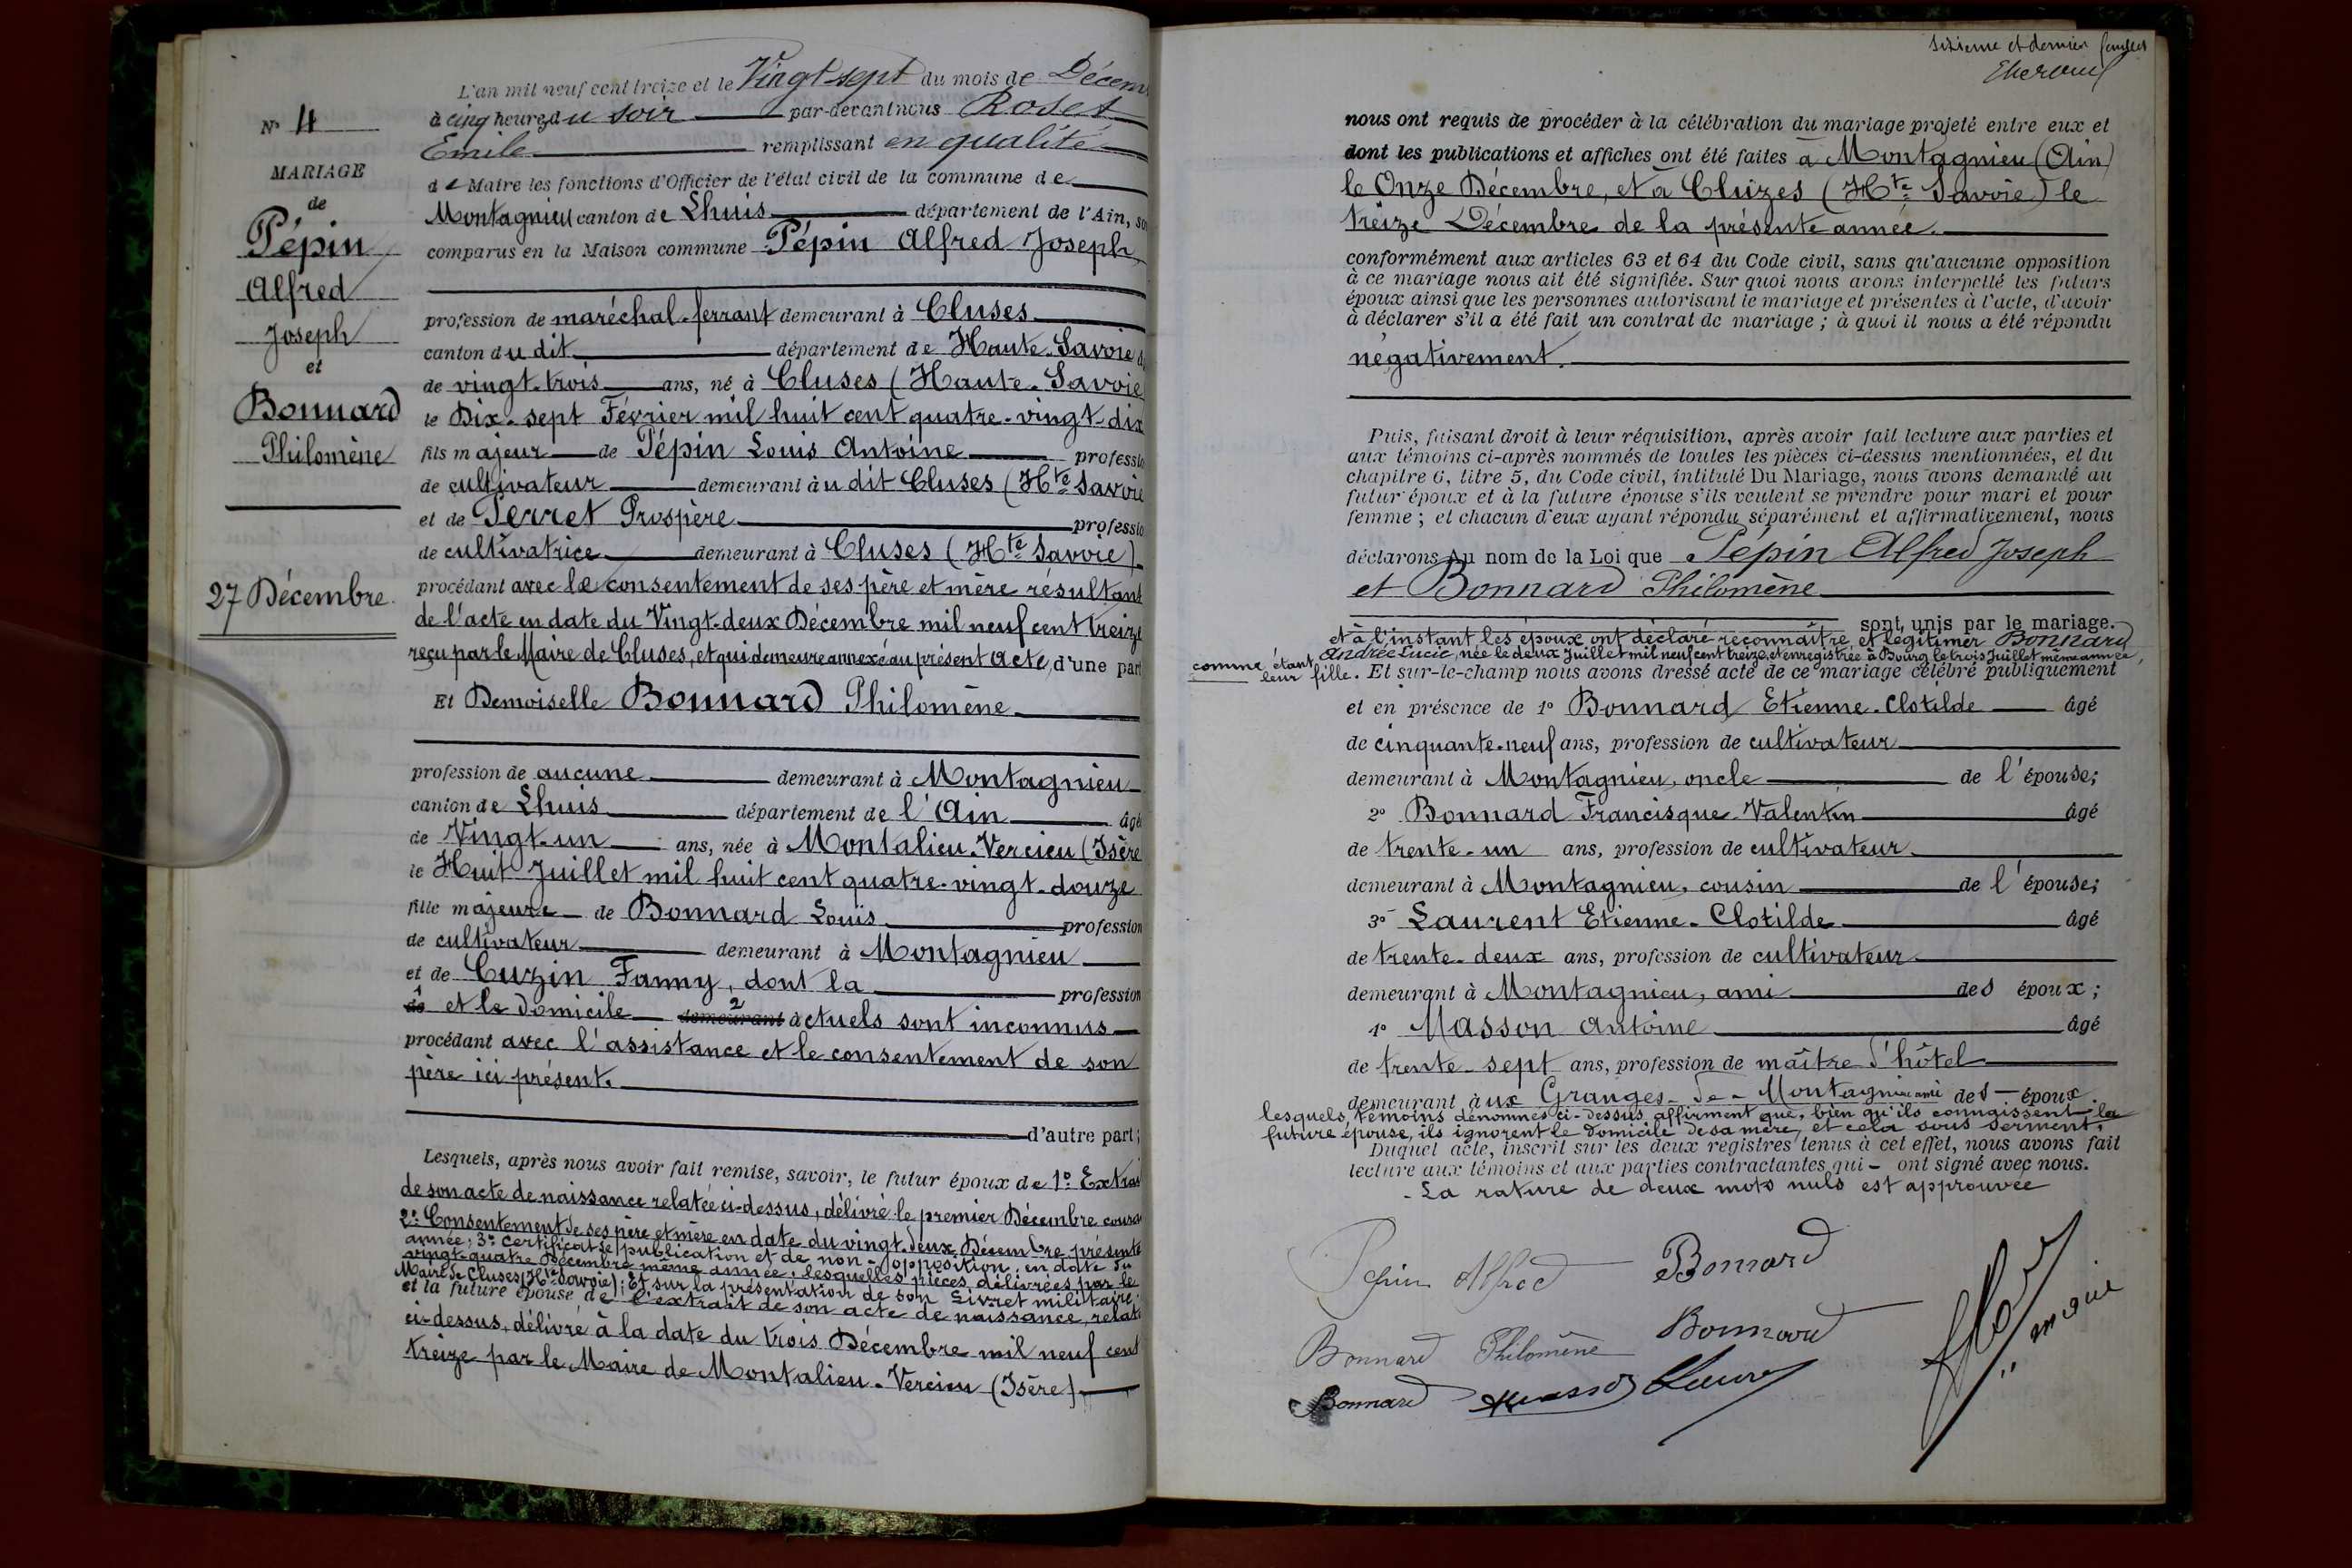 N° 4
MARIAGE
de
Pépin
Alfred
Joseph
et
Bonnard
Philomène
27 Décembre.
L'an mil neuf cent treize et le Vingt-sept du mois de Décem
à cinq heures du soir par-devant nous Roset
Emile remplissant en qualité
de Maire les fonctions d'Officier de l'état civil de la commune de
Montagnieu canton de Lhuis département de l'Ain, so
comparus en la Maison commune Pépin Alfred Joseph,
profession de maréchal-ferrant demeurant à Cluses
canton du dit département de Haute-Savoie
de vingt-trois ans, né à Cluses (Haute-Savoie
le Dix-sept Février mil huit cent quatre-vingt-dix
fils majeur de Pépin Louis Antoine professio
de cultivateur demeurant au dit Cluses (Hte Savoie
et de Perret Prospère professio
de cultivatrice demeurant à Cluses (Hte Savoie)
procédant avec le consentement de ses père et mère résultant
de l'acte en date du Vingt-deux Décembre mil neuf cent treize
reçu par le Maire de Cluses, et qui demeure annexé au présent acte, d'une part
Et Demoiselle Bonnard Philomène
profession de aucune demeurant à Montagnieu
canton de Lhuis département de l'Ain âgé
de Vingt-un ans, née à Montalieu-Vercieu (Isère
le Huit Juillet mil huit cent quatre-vingt-douze
fille majeure de Bonnard Louis profession
de cultivateur demeurant à Montagnieu
et de Cuzin Fanny, dont la profession
1 2
de et le domicile demeurant actuels sont inconnus
procédant avec l'assistance et le consentement de son
père ici présent.
d'autre part;
Lesquels, après nous avoir fait remise, savoir, le futur époux de 1° Extrai
de son acte de naissance relatée ci-dessus, délivré le premier Décembre couran
2° Consentement de ses père et mère en date du vingt-deux Décembre présente
année; 3° Certificat de publication et de non-opposition, en date du
vingt-quatre Décembre même année; lesquelles pièces délivrées par le
Maire de Cluses (Hte Savoie); Et sur la présentation de son Livret militaire;
et la future épouse de l'extrait de son acte de naissance, relaté
ci-dessus, délivré à la date du trois Décembre mil neuf cent
treize par le Maire de Montalieu-Vercieu (Isère)
Sixième et dernier feuillet
nous ont requis de procéder à la célébration du mariage projeté entre eux et
dont les publications et affiches ont été faites à Montagnieu (Ain)
le Onze Décembre, et à Cluizes (Hte Savoie) le
treize Décembre de la présente année.
conformément aux articles 63 et 64 du Code civil, sans qu'aucune opposition
à ce mariage nous ait été signifiée. Sur quoi nous avons interpellé les futurs
époux ainsi que les personnes autorisant le mariage et présentes à l'acte, d'avoir
à déclarer s'il a été fait un contrat de mariage; à quoi il nous a été répondu
négativement.
Puis, faisant droit à leur réquisition, après avoir fait lecture aux parties et
aux témoins ci-après nommés de toutes les pièces ci-dessus mentionnées, et du
chapitre 6, titre 5, du Code civil, intitulé Du Mariage, nous avons demandé au
futur époux et à la future épouse s'ils veulent se prendre pour mari et pour
femme; et chacun d'eux ayant répondu séparément et affirmativement, nous
déclarons Au nom de la Loi que Pépin Alfred Joseph
et Bonnard Philomène
sont unis par le mariage.
et à l'instant les époux ont déclaré reconnaître et légitimer Bonnard
Andrée Lucie, née le deux Juillet mil neuf cent treize, et enregistrée à Bourg le trois Juillet même année,
comme étant leur fille. Et sur-le-champ nous avons dressé acte de ce mariage célébré publiquement
et en présence de 1° Bonnard Etienne-Clotilde âgé
de cinquante-neuf ans, profession de cultivateur
demeurant à Montagnieu, oncle de l'épouse;
2° Bonnard Francisque-Valentin âgé
de trente-un ans, profession de cultivateur
demeurant à Montagnieu, cousin de l'épouse;
3° Laurent Etienne-Clotilde âgé
de trente-deux ans, profession de cultivateur
demeurant à Montagnieu, ami des époux;
4° Masson Antoine âgé
de trente-sept ans, profession de maître d'hôtel
demeurant aux Granges-de-Montagnieu ami des époux.
lesquels témoins dénommés ci-dessus affirment que, bien qu'ils connaissent la
future épouse, ils ignorent le domicile de sa mère, et cela sous serment.
Duquel acte, inscrit sur les deux registres tenus à cet effet, nous avons fait
lecture aux témoins et aux parties contractantes qui ont signé avec nous.
La rature de deux mots nuls est approuvée
Pepin Alfred Bonnard
Bonnard Philomène Bonnard
Bonnard Masson